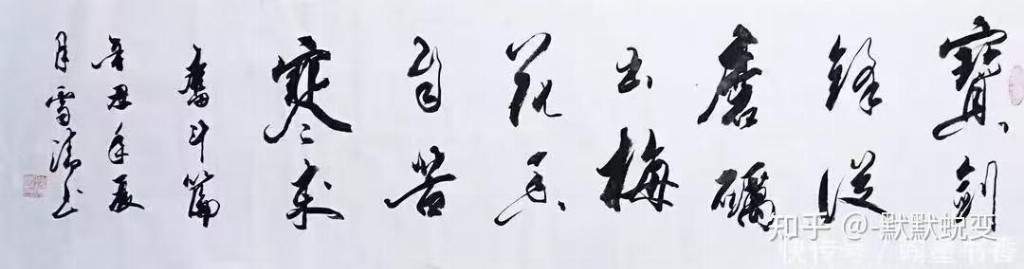 寳劍
鋒從
磨礪
出梅
花香
自苦
寒来
奮斗篇
辛丑年夏
月雪清书
知乎 @-默默蜕变